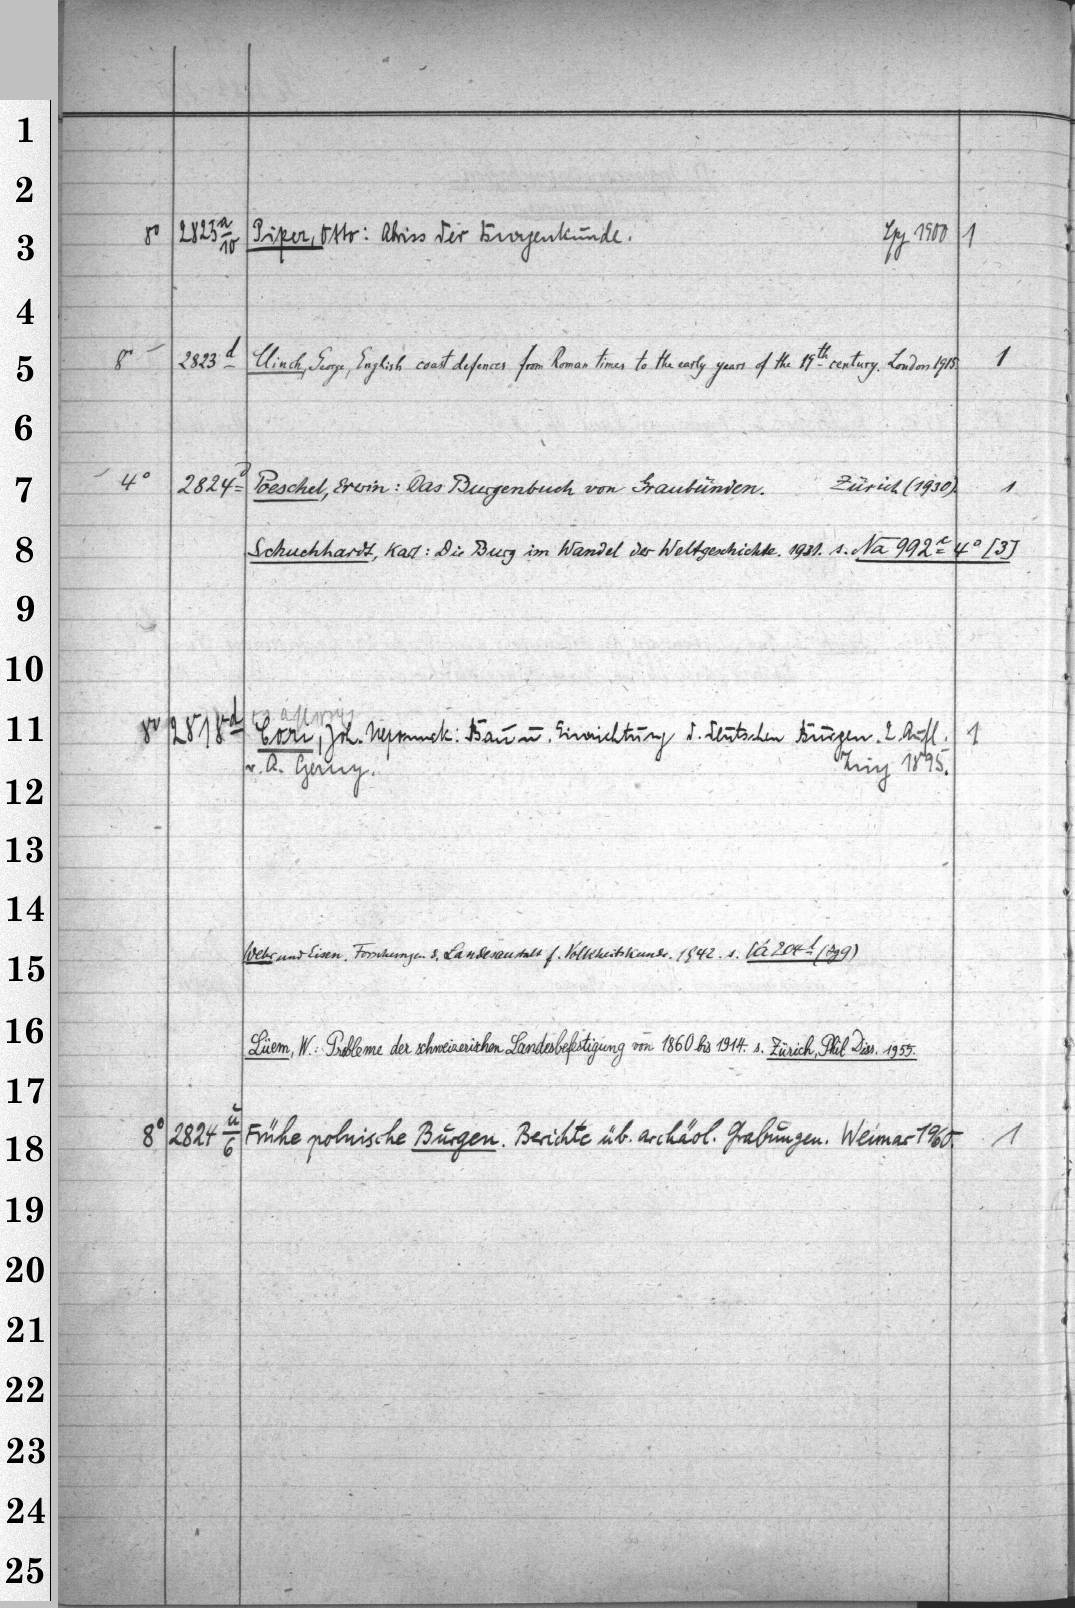 1
2
3 8° 2823 a/10 Piper, Otto: Abriss der Burgenkunde. Lpz 1900 1
4
5 8° 2823 d Clinch, George, English coast defences from Roman times to the early years of the 19th century. London 1915. 1
6
7 4° 2824 Poeschel, Erwin: Das Burgenbuch von Graubünden. Zürich (1930). 1
8 Schuchhardt, Karl: Die Burg im Wandel der Weltgeschichte. 1931. s. Na 992 a 4° [3]
9
10
11 8° 2818 d Cori, Joh. Nepomuck: Bau u. Einrichtung d. deutschen Burgen. 2. Aufl. 1
v. A.
1895.
12
13
14
15 Wehr und Eisen. Forschungen d. Landesanstalt f. Volkheitskunde. 1942. s.
16 Lüem, W.: Probleme der schweizerischen Landesbefestigung von 1860 bis 1914. s. Zürich, Phil Diss. 1955.
17
18 8° 2824 u/6 Frühe polnische Burgen. Berichte üb. archäol. Grabungen. Weimar 1960. 1
19
20
21
22
23
24
25